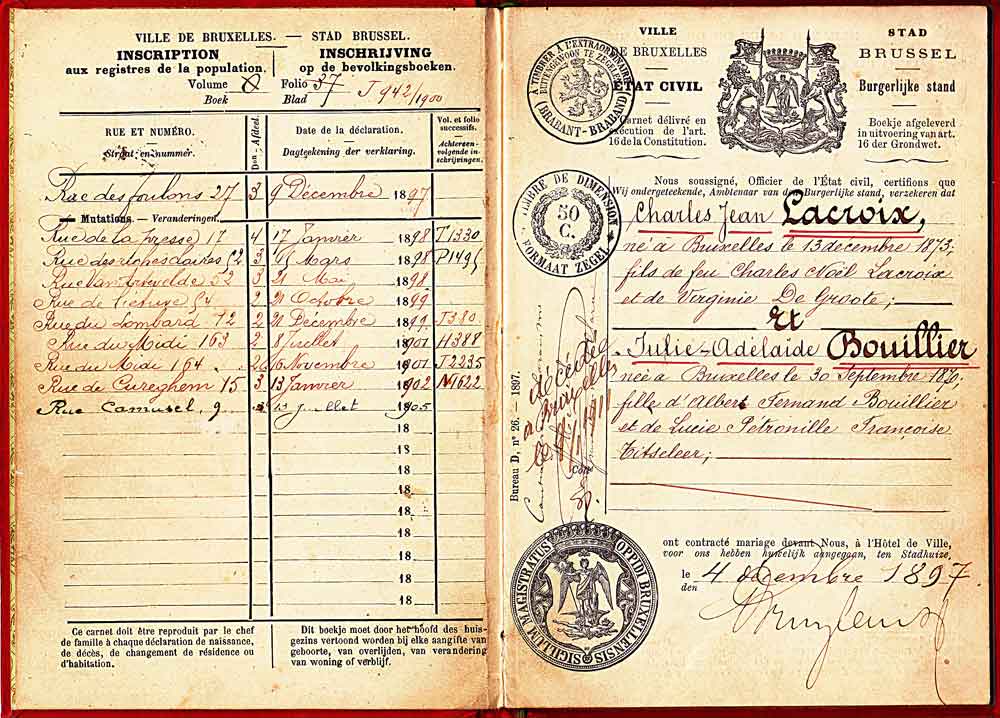 VILLE DE BRUXELLES. — STAD BRUSSEL.
INSCRIPTION
aux registres de la population.
INSCHRIJVING
op de bevolkingsboeken.
Volume 8 Folio 37 J 942/1900
Boek Blad
RUE ET NUMÉRO.
Straat en nummer.
Don - Afdeel.
Date de la déclaration.
Dagteekening der verklaring.
Vol. et folio successifs.
Achtereen-volgende in-schrijvingen.
Rue des foulons 27 3 9 Décembre 1897
Mutations. — Veranderingen.
Rue de la 17 4 17 Janvier 1898 T1330
Rue des 3 Mars 1898
Rue Van Artevelde 52 3 21 Mai 1898
Rue de 2 21 Octobre 1899
Rue du Lombard 12 2 21 Décembre 1899 J380
Rue du Midi 163 2 8 Juillet 1901 H388
Rue du Midi 164 2 16 Novembre 1901 J2235
Rue de Cureghem 15 3 13 Janvier 1902 N1622
Rue Camusel, 9 13 juillet 1905
18
18
18
18
18
18
18
18
18
Ce carnet doit être reproduit par le chef
de famille à chaque déclaration de naissance,
de décès, de changement de résidence ou
d'habitation.
Dit boekje moet door het hoofd des huis-
gezins vertoond worden bij elke aangifte van
geboorte, van overlijden, van verandering
van woning of verblijf.
VILLE
DE BRUXELLES
ÉTAT CIVIL
Carnet délivré en
exécution de l'art.
16 de la Constitution.
STAD
BRUSSEL
Burgerlijke stand
Boekje afgeleverd
in uitvoering van art.
16 der Grondwet.
À TIMBRER À L'EXTRAORDINAIRE
BUITENGEWOON TE ZEGELEN
(BRABANT-BRABAND)
TIMBRE DE DIMENSION
50
C.
FORMAAT ZEGEL
Nous soussigné, Officier de l'État civil, certifions que
Wij ondergeteekende, Ambtenaar van den Burgerlijke stand, verzekeren dat
Charles Jean Lacroix,
né à Bruxelles le 13 décembre 1873;
fils de feu Charles Noël Lacroix
et de Virginie De Groote;
Et
Julie-Adélaïde Bouillier
née à Bruxelles le 30 Septembre
fille d'Albert Fernand Bouillier
et de Lucie Pétronille Françoise
Titscleer;
Bureau D, n° 26. — 1897.
à Bruxelles
ont contracté mariage devant Nous, à l'Hôtel de Ville,
voor ons hebben huwelijk aangegaan, ten Stadhuize,
le 4 décembre 1897.
den
SIGILLUM MAGISTRATUS OPPIDI BRUXELLENSIS